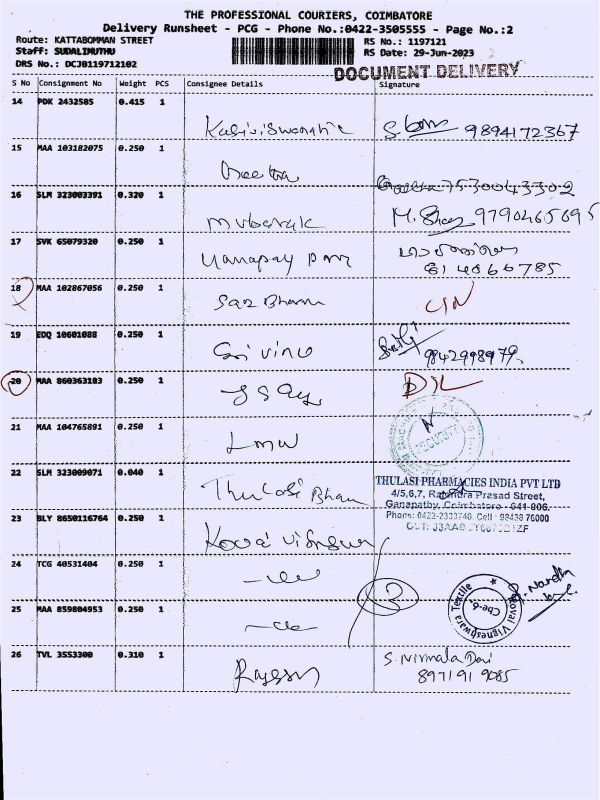 THE PROFESSIONAL COURIERS, COIMBATORE
Delivery Runsheet - PCG - Phone No.:0422-3505555 - Page No.:2
Route: KATTABOMMAN STREET
Staff: SUDALIMUTHU
DRS No.: DCJB119712102
RS No.: 1197121
RS Date: 29-Jun-2023
DOCUMENT DELIVERY
S No Consignment No Weight PCS Consignee Details Signature
14 PDK 2432585 0.415 1
9894172367
15 MAA 103182075 0.250 1 Geetha
Geetha 7530043302
16 SLM 323003391 0.320 1 Mubarak 9790465695
17 SVK 65079320 0.250 1
814066785
18 MAA 102867056 0.250 1 Sae Bharu
19 EDQ 10601088 0.250 1 Sri vino
9842998979
20 MAA 860363183 0.250 1 DIL
21 MAA 104765891 0.250 1 LMW
SECURITY
22 SLM 323009071 0.040 1 Thulasi Bhau
THULASI PHARMACIES INDIA PVT LTD
4/5,6,7, Rajendra Prasad Street,
Ganapathy, Coimbatore - 641 006.
Phone: 0422-2333740. Cell : 98438 76000
23 BLY 8650116764 0.250 1 Kovai Vignesware
24 TCG 40531404 0.250 1
25 MAA 859804953 0.250 1
Kovai Vigneshwara Textile
Cbe-6.
26 TVL 3553300 0.310 1 S. Nirmala Devi
8971919085